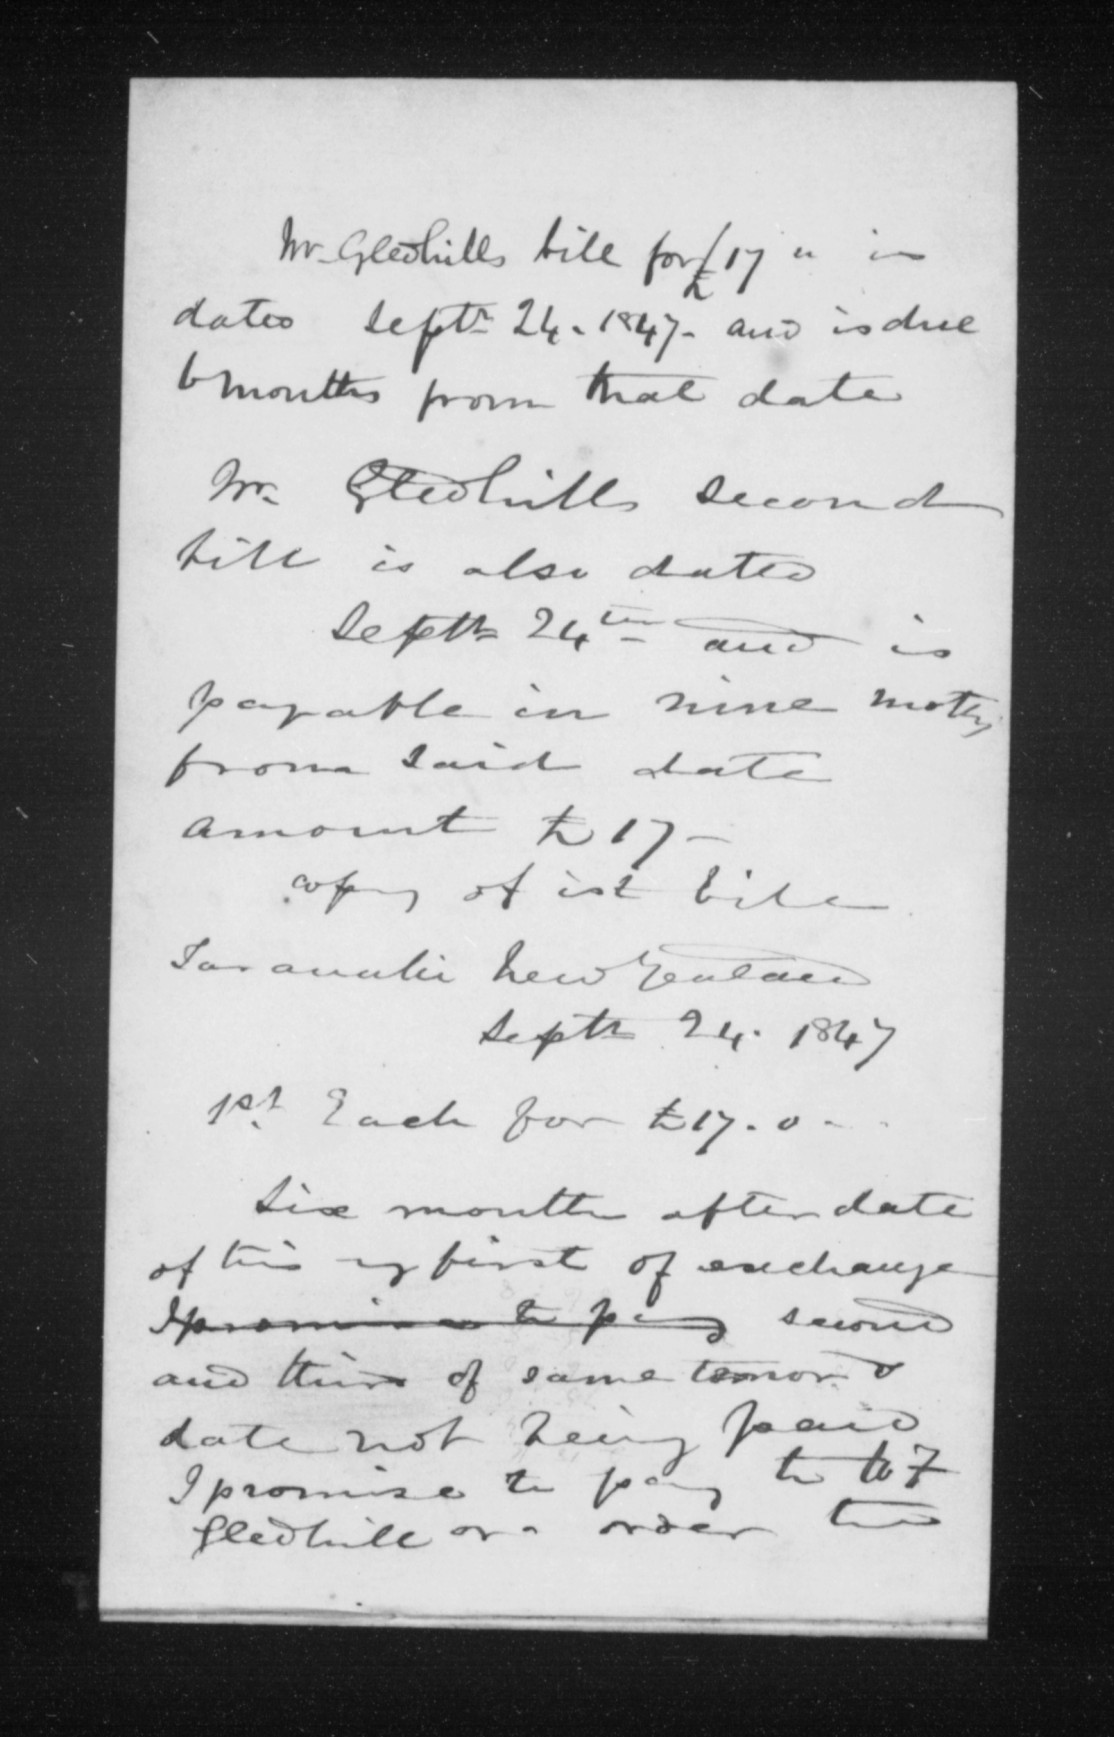 Mr Gledhills bill for £17 " is
dated Septr 24. 1847. and is due
6 months from that date
Mr. Gledhills second
bill is also dated
Septr 24th and is
payable in nine moths
from said date
amount £17 -
copy of 1st bill
Taranaki New Zealand
Septr 24. 1847
1st. Each for £17. 0 - -
Six months after date
of this my first of exchange
I promise to pay second
and third of same tenor &
date not being paid
I promise to pay to
Gledhill or order the